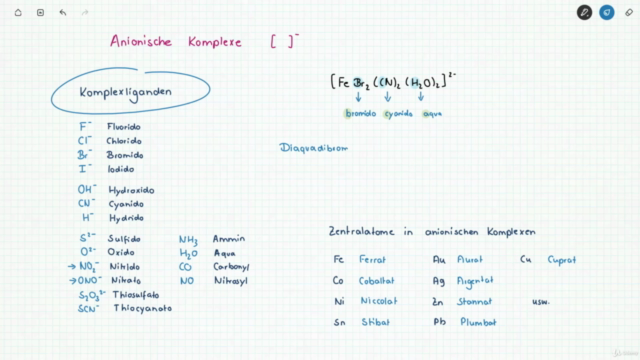 Anionische Komplexe [ ]⁻
Komplexliganden
F⁻ Fluorido
Cl⁻ Chlorido
Br⁻ Bromido
I⁻ Iodido
OH⁻ Hydroxido
CN⁻ Cyanido
H⁻ Hydrido
S²⁻ Sulfido
O²⁻ Oxido
→ NO₂⁻ Nitrido
→ ONO⁻ Nitrato
S₂O₃²⁻ Thiosulfato
SCN⁻ Thiocyanato
NH₃ Ammin
H₂O Aqua
CO Carbonyl
NO Nitrosyl
[Fe Br₂ (CN)₂ (H₂O)₂]²⁻
bromido cyanido aqua
Diaquadibrom
Zentralatome in anionischen Komplexen
Fe Ferrat Au Aurat Cu Cuprat
Co Cobaltat Ag Argentat
Ni Niccolat Zn Stannat usw.
Sn Stibat Pb Plumbat